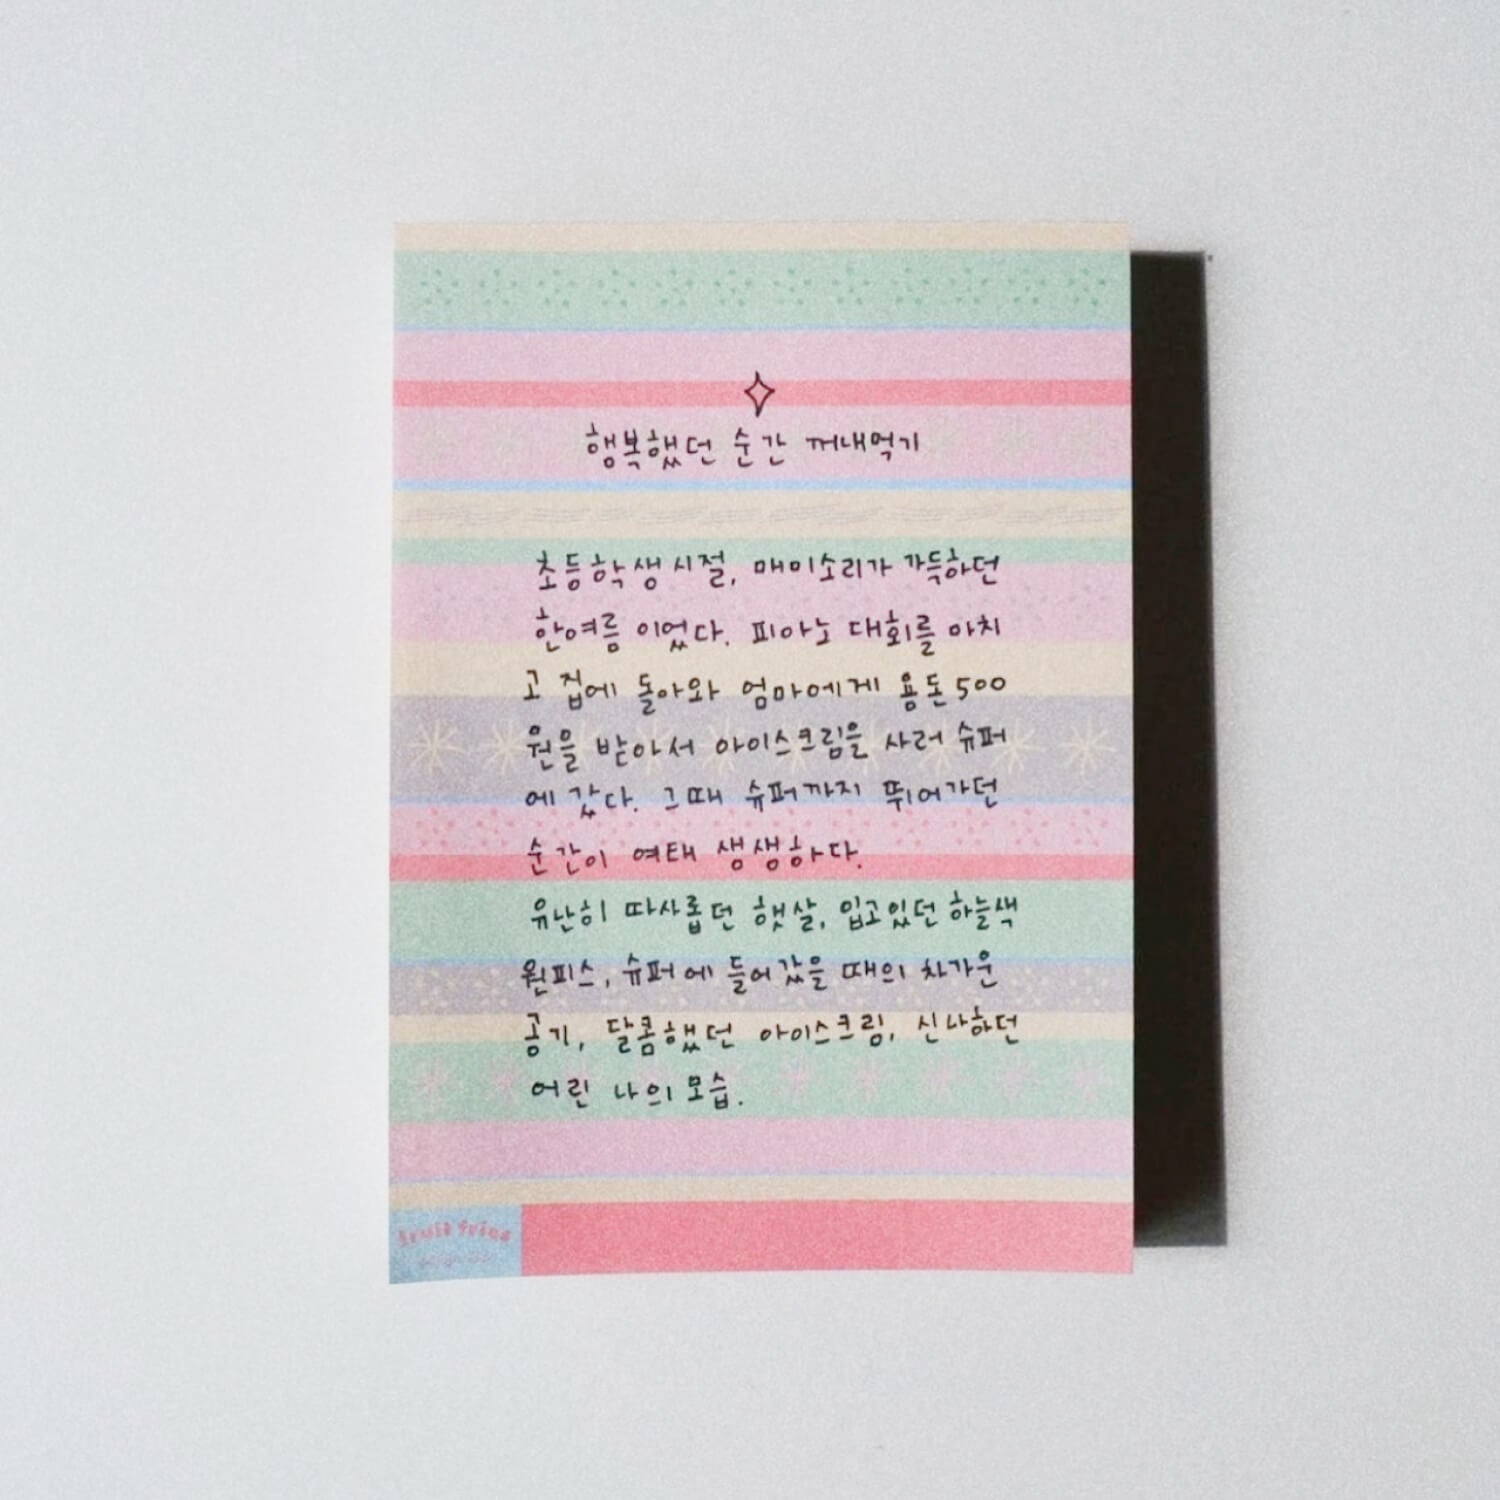 행복했던 순간 꺼내먹기
초등학생시절, 매미소리가 가득하던
한여름 이었다. 피아노 대회를 마치
고 집에 돌아와 엄마에게 용돈 500
원을 받아서 아이스크림을 사러 슈퍼
에 갔다. 그때 슈퍼까지 뛰어가던
순간이 여태 생생하다.
유난히 따사롭던 햇살, 입고있던 하늘색
원피스, 슈퍼에 들어갔을 때의 차가운
공기, 달콤했던 아이스크림, 신나하던
어린 나의 모습.